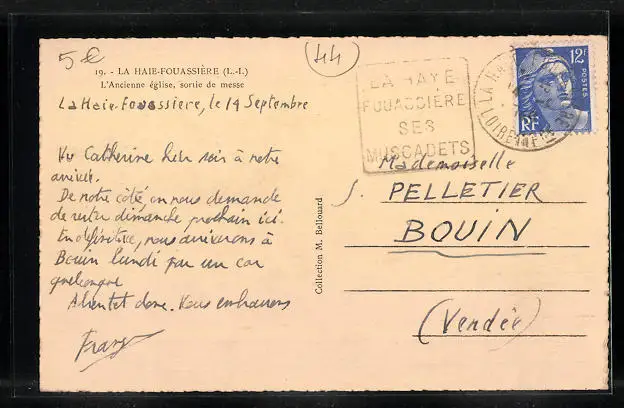 5 €
44
19. - LA HAIE-FOUASSIÈRE (L.-I.)
L'Ancienne église, sortie de messe
La Haie-Fouassiere, le 14 Septembre
Vu Catherine hier soir à notre
arrivée.
De notre côté, on nous demande
de rester dimanche prochain ici.
En définitive, nous arriverons à
Bouin lundi par un car
quelconque.
A bientôt donc. Vous embrassons
Collection M. Bellouard
LA HAYE
FOUASSIÈRE
SES
MUSCADETS
LA HA
LOIRE
12F
POSTES
RF
Mademoiselle
J. PELLETIER
BOUIN
(Vendée)